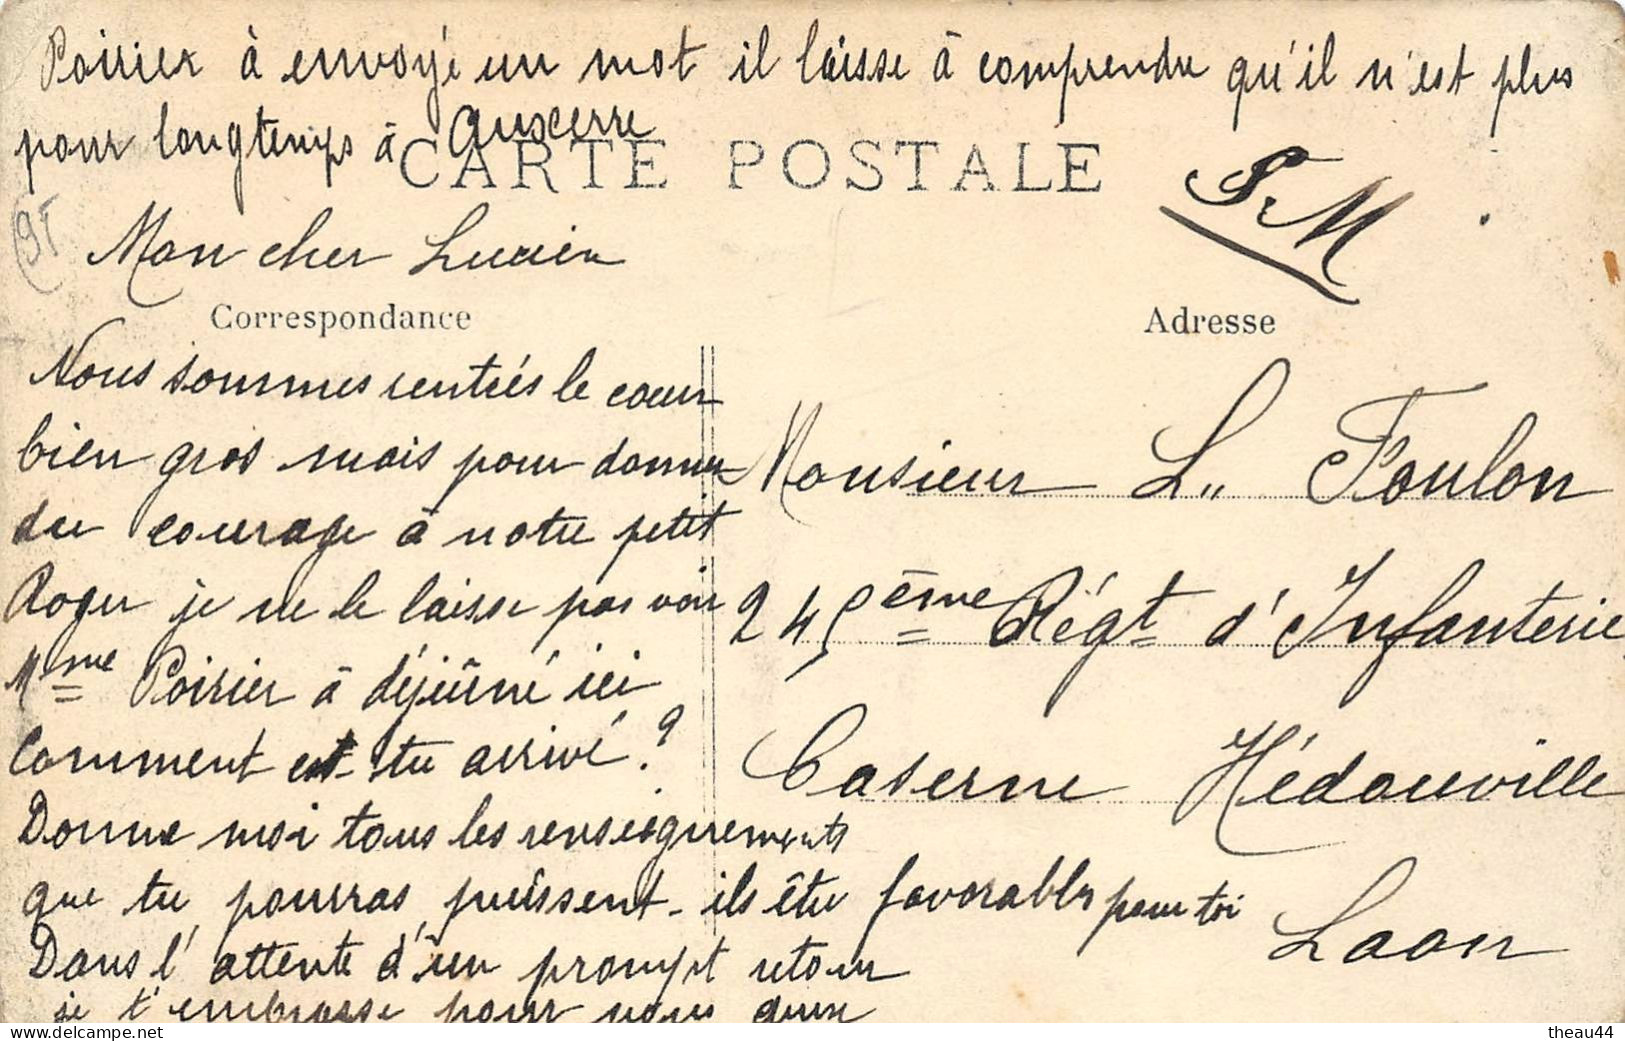 Poirier à envoyé un mot il laisse à comprendre qu'il n'est plus
pour longtemps à Auxerre
CARTE POSTALE
SM
91
Mon cher Lucien
Correspondance
Adresse
Nous sommes rentrés le cœur
bien gros mais pour donner
du courage à notre petit
Roger je ne le laisse pas voir
Mme Poirier à déjeûné ici
Comment est-tu arrivé ?
Donne moi tous les renseignements
que tu pourras puissent-ils être favorables pour toi
Dans l'attente d'un prompt retour
je t'embrasse pour nous deux
Monsieur L. Foulon
245ème Régt d'Infanterie
Caserne Hédouville
Laon
www.delcampe.net
theau44